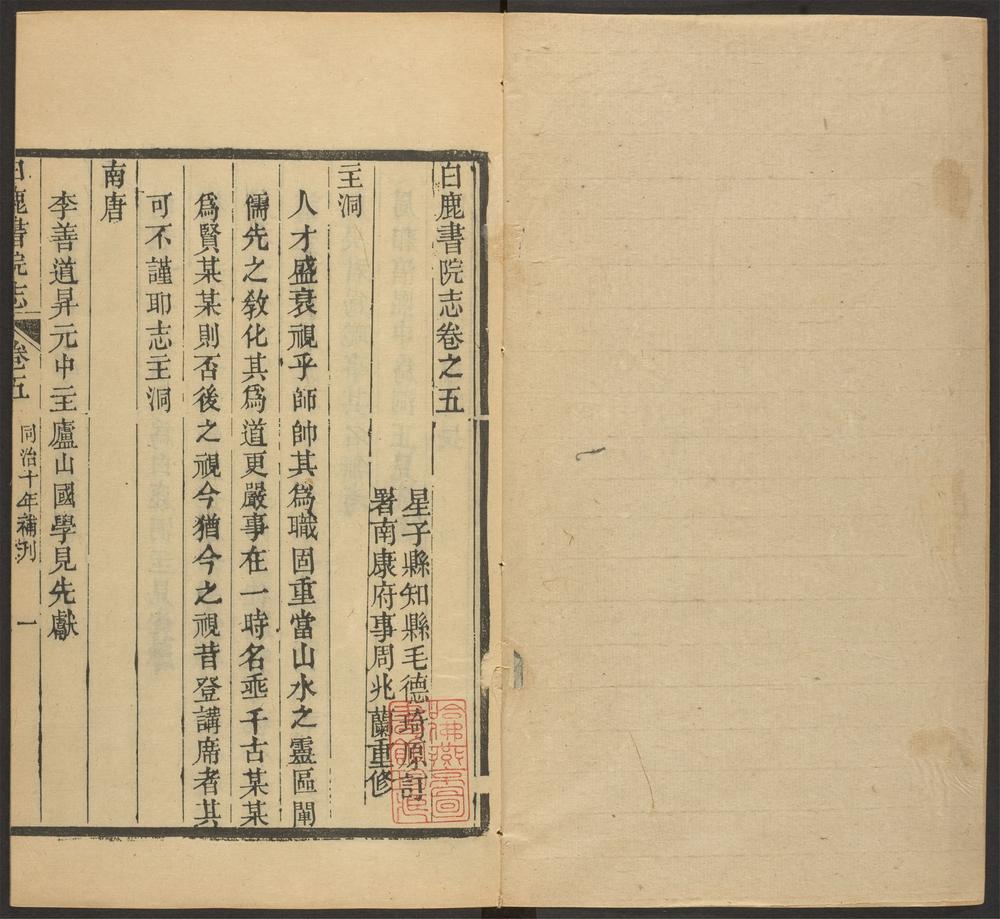 白鹿書院志卷之五
星子縣知縣毛德琦原訂
署南康府事周兆蘭重修
主洞
人才盛衰視乎師帥其爲職固重當山水之靈區闡
儒先之教化其爲道更嚴事在一時名垂千古某某
爲賢某某則否後之視今猶今之視昔登講席者其
可不謹耶志主洞
南唐
李善道昇元中主廬山國學見先獻
白鹿書院志 卷五 同治十年補刋 一
哈佛燕京圖